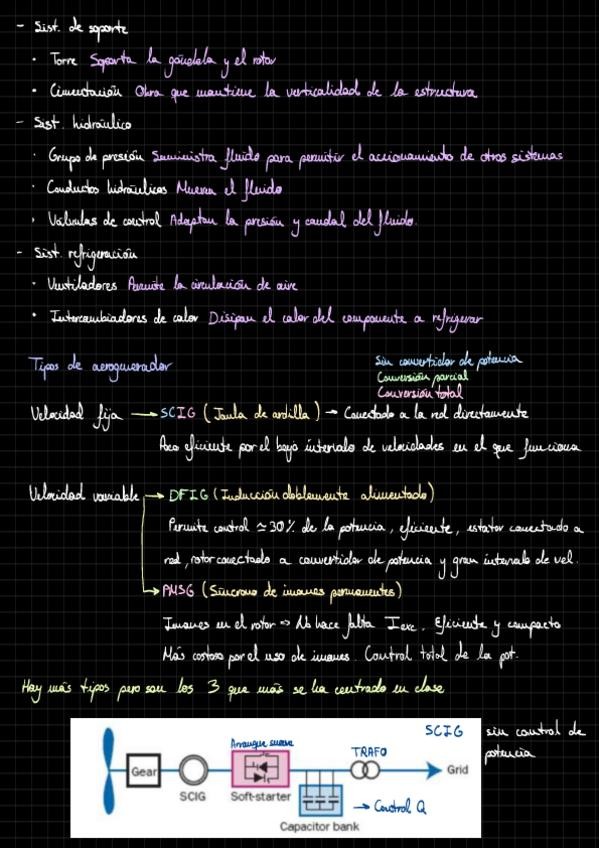 - Sist. de soporte
· Torre Soporta la góndola y el rotor
· Cimentación Obra que mantiene la verticalidad de la estructura
- Sist. hidráulico
· Grupo de presión Suministra fluido para permitir el accionamiento de otros sistemas
· Conductos hidráulicos Mueven el fluido
· Válvulas de control Adaptan la presión y caudal del fluido.
- Sist. refrigeración
· Ventiladores Permite la circulación de aire
· Intercambiadores de calor Disipan el calor del componente a refrigerar
Tipos de aerogenerador
Sin convertidor de potencia
Conversión parcial
Conversión total
Velocidad fija → SCIG (Jaula de ardilla) → Conectado a la red directamente
Poco eficiente por el bajo intervalo de velocidades en el que funciona
Velocidad variable → DFIG (Inducción doblemente alimentado)
Permite control ≃ 30% de la potencia, eficiente, estator conectado a
red, rotor conectado a convertidor de potencia y gran intervalo de vel.
→ PMSG (Síncrono de imanes permanentes)
Imanes en el rotor => No hace falta Iexc. Eficiente y compacto
Más costoso por el uso de imanes. Control total de la pot.
Hay más tipos pero son los 3 que más se ha centrado en clase
SCIG sin control de
potencia
Arranque suave
TRAFO
Gear
Grid
SCIG
Soft-starter
→ Control Q
Capacitor bank